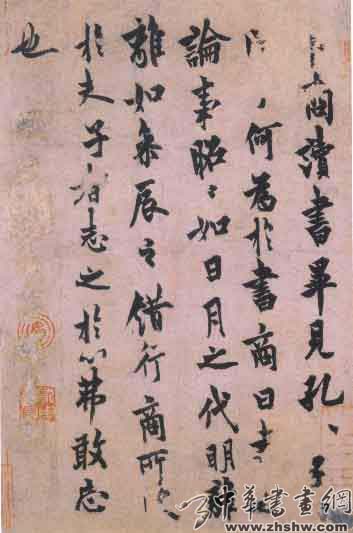 卜商讀書畢見孔〻子
何為於書商曰書
論事昭〻如日月之代明離
離如參辰之錯行商所
於夫子者志之於心弗敢忘
也
中華書畫網
www.zhshw.com